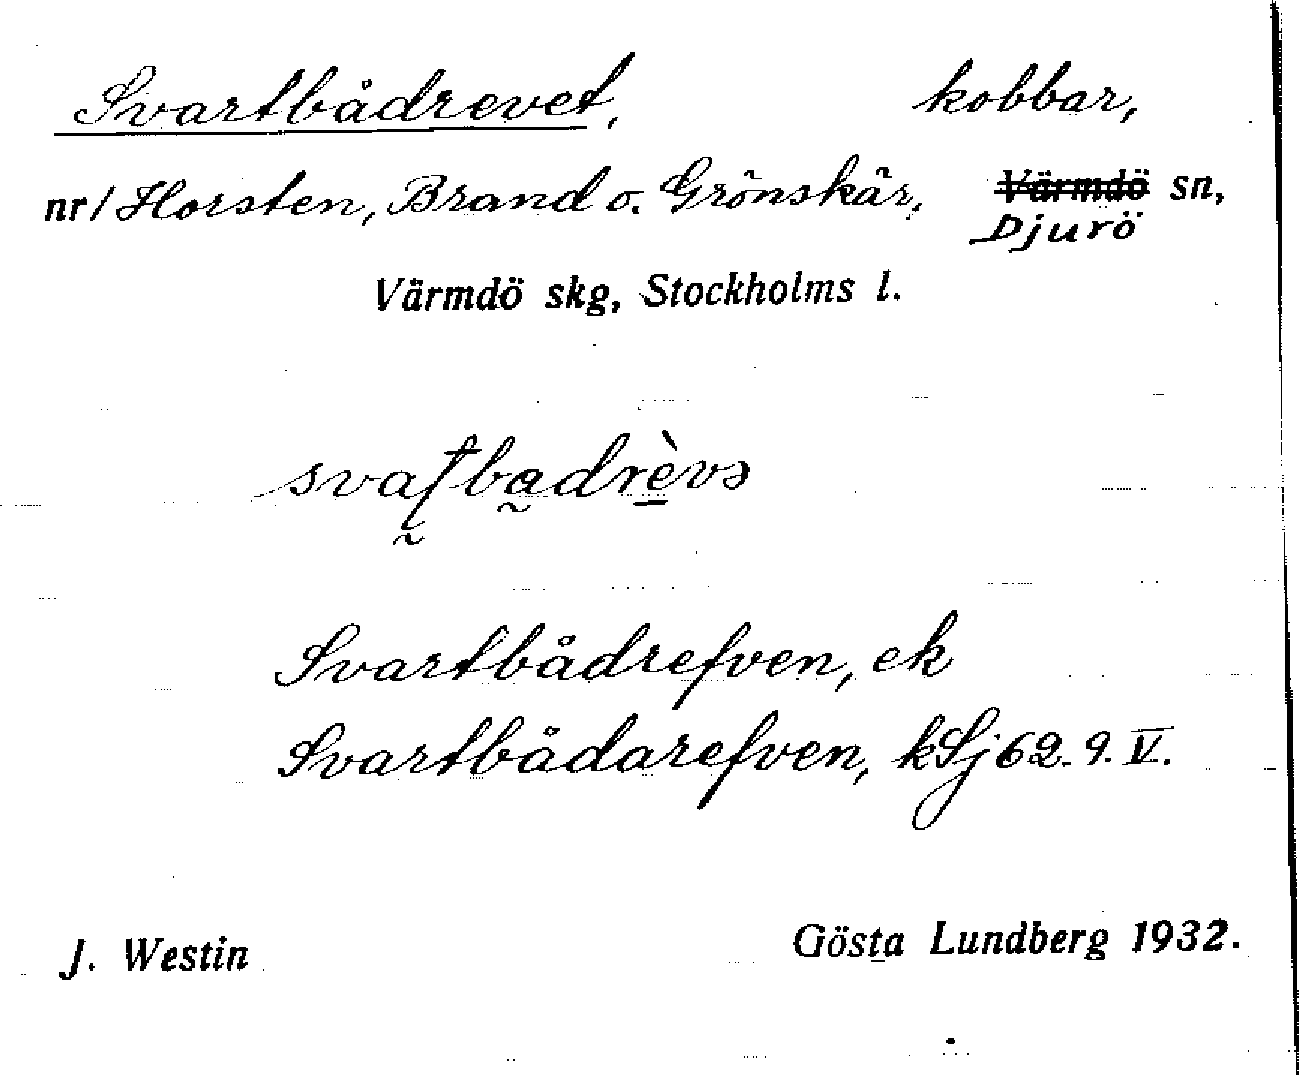 Svartbådrevet, kobbar,
nr/ Horsten, Brand o. Grönskär, Värmdö sn,
Djurö
Värmdö skg, Stockholms l.
Svartbådrefven, ek
Svartbådarefven, kSj 62. 9. V.
J. Westin Gösta Lundberg 1932.